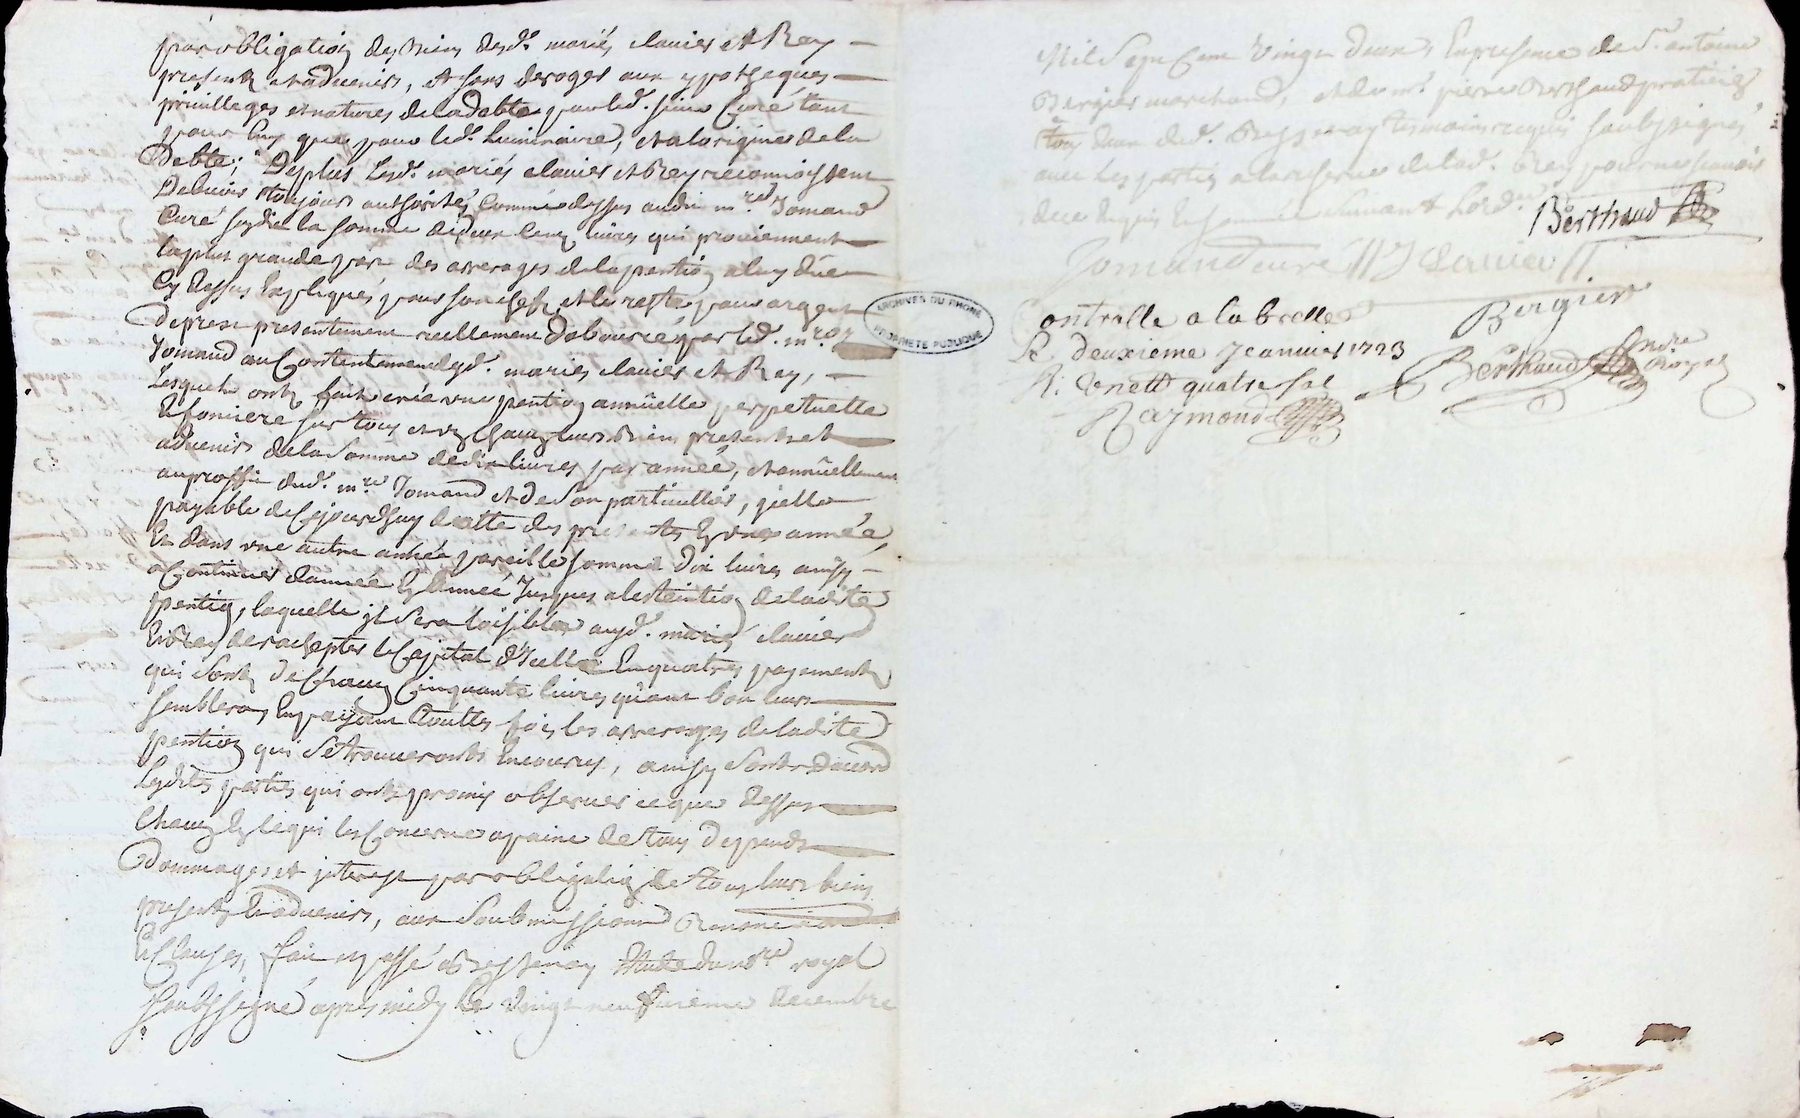 par obligation des biens desd. mariés clavier et Rey
presents et advenirs, et sans deroger aux ypotheques
privilleges et natures de la debte par led. sieur Curé tant
pour luy que pour led. Luminaire, et a l'origine de la
Debte; Deplus lesd. mariés clavier et Rey reconnoissent
Debvoir toujours authorisés comme dessus audit mre Jomand
Curé susdit la somme de deux cent livres qui proviennent
la plus grande part des arrerages de la pention a luy düe
Cy dessus Expliqués pour son chef, et le reste pour argent
De prest presentement reellement Deboursé par led. mre
Jomand au Contentement desd. mariés clavier et Rey,
Lesquels ont fait créé une pention annüelle perpetuelle
et fonciere sur tous et un chacuns leurs biens presents et
advenirs de la somme de dix livres par année, et annüellement
au proffit dud. mre Jomand et de son particullier, jcelle
payable de cejourdhuy datte des presentes En une année,
Et dans une autre année pareille somme Dix livres ainsy
a Continuer dannée En Année Jusques a lextention de ladite
pention, laquelle jl sera loisible ausd. mariés clavier
et Rey de rachepter le Capital d'Jcelle En quatres payements
qui sont de chacun Cinquante livres quant bon leurs
semblera En payant touttes fois les arrerages de ladite
pention qui se trouveronts Encourus, ainsy sont D'acord
Lesdits parties qui ont promis observer ce que dessus
Chacun En le qui les Concerne a paine de tous Depends
Dommages et jnterest par obligation de tous leurs biens
presents et advenirs, aux Soubmissions Renonciation
et Clauses, fait et passé a Bessenay Etude du nre royal
Soubssigné apres midy le vingt neufvieme decembre
Mil Sept Cent Vingt deux En presence de Sr. antoine
Bergier marchand, et de mr. pierre Berthaud praticien
tous deux dud. Bessenay tesmoins requis soubssignés
avec les parties a la reserve de lad. Rey pour ne scavoir
de ce Enquis Suivant Lord.
Berthaud
Jomand curé J Clavier
Bergier
Controlle a la brelle
Le deuxieme Jeanvier 1723
R. Vnett quatre sol
Berthaud Nore Royal
Raymond
ARCHIVES DU RHONE
PROPRIETE PUBLIQUE